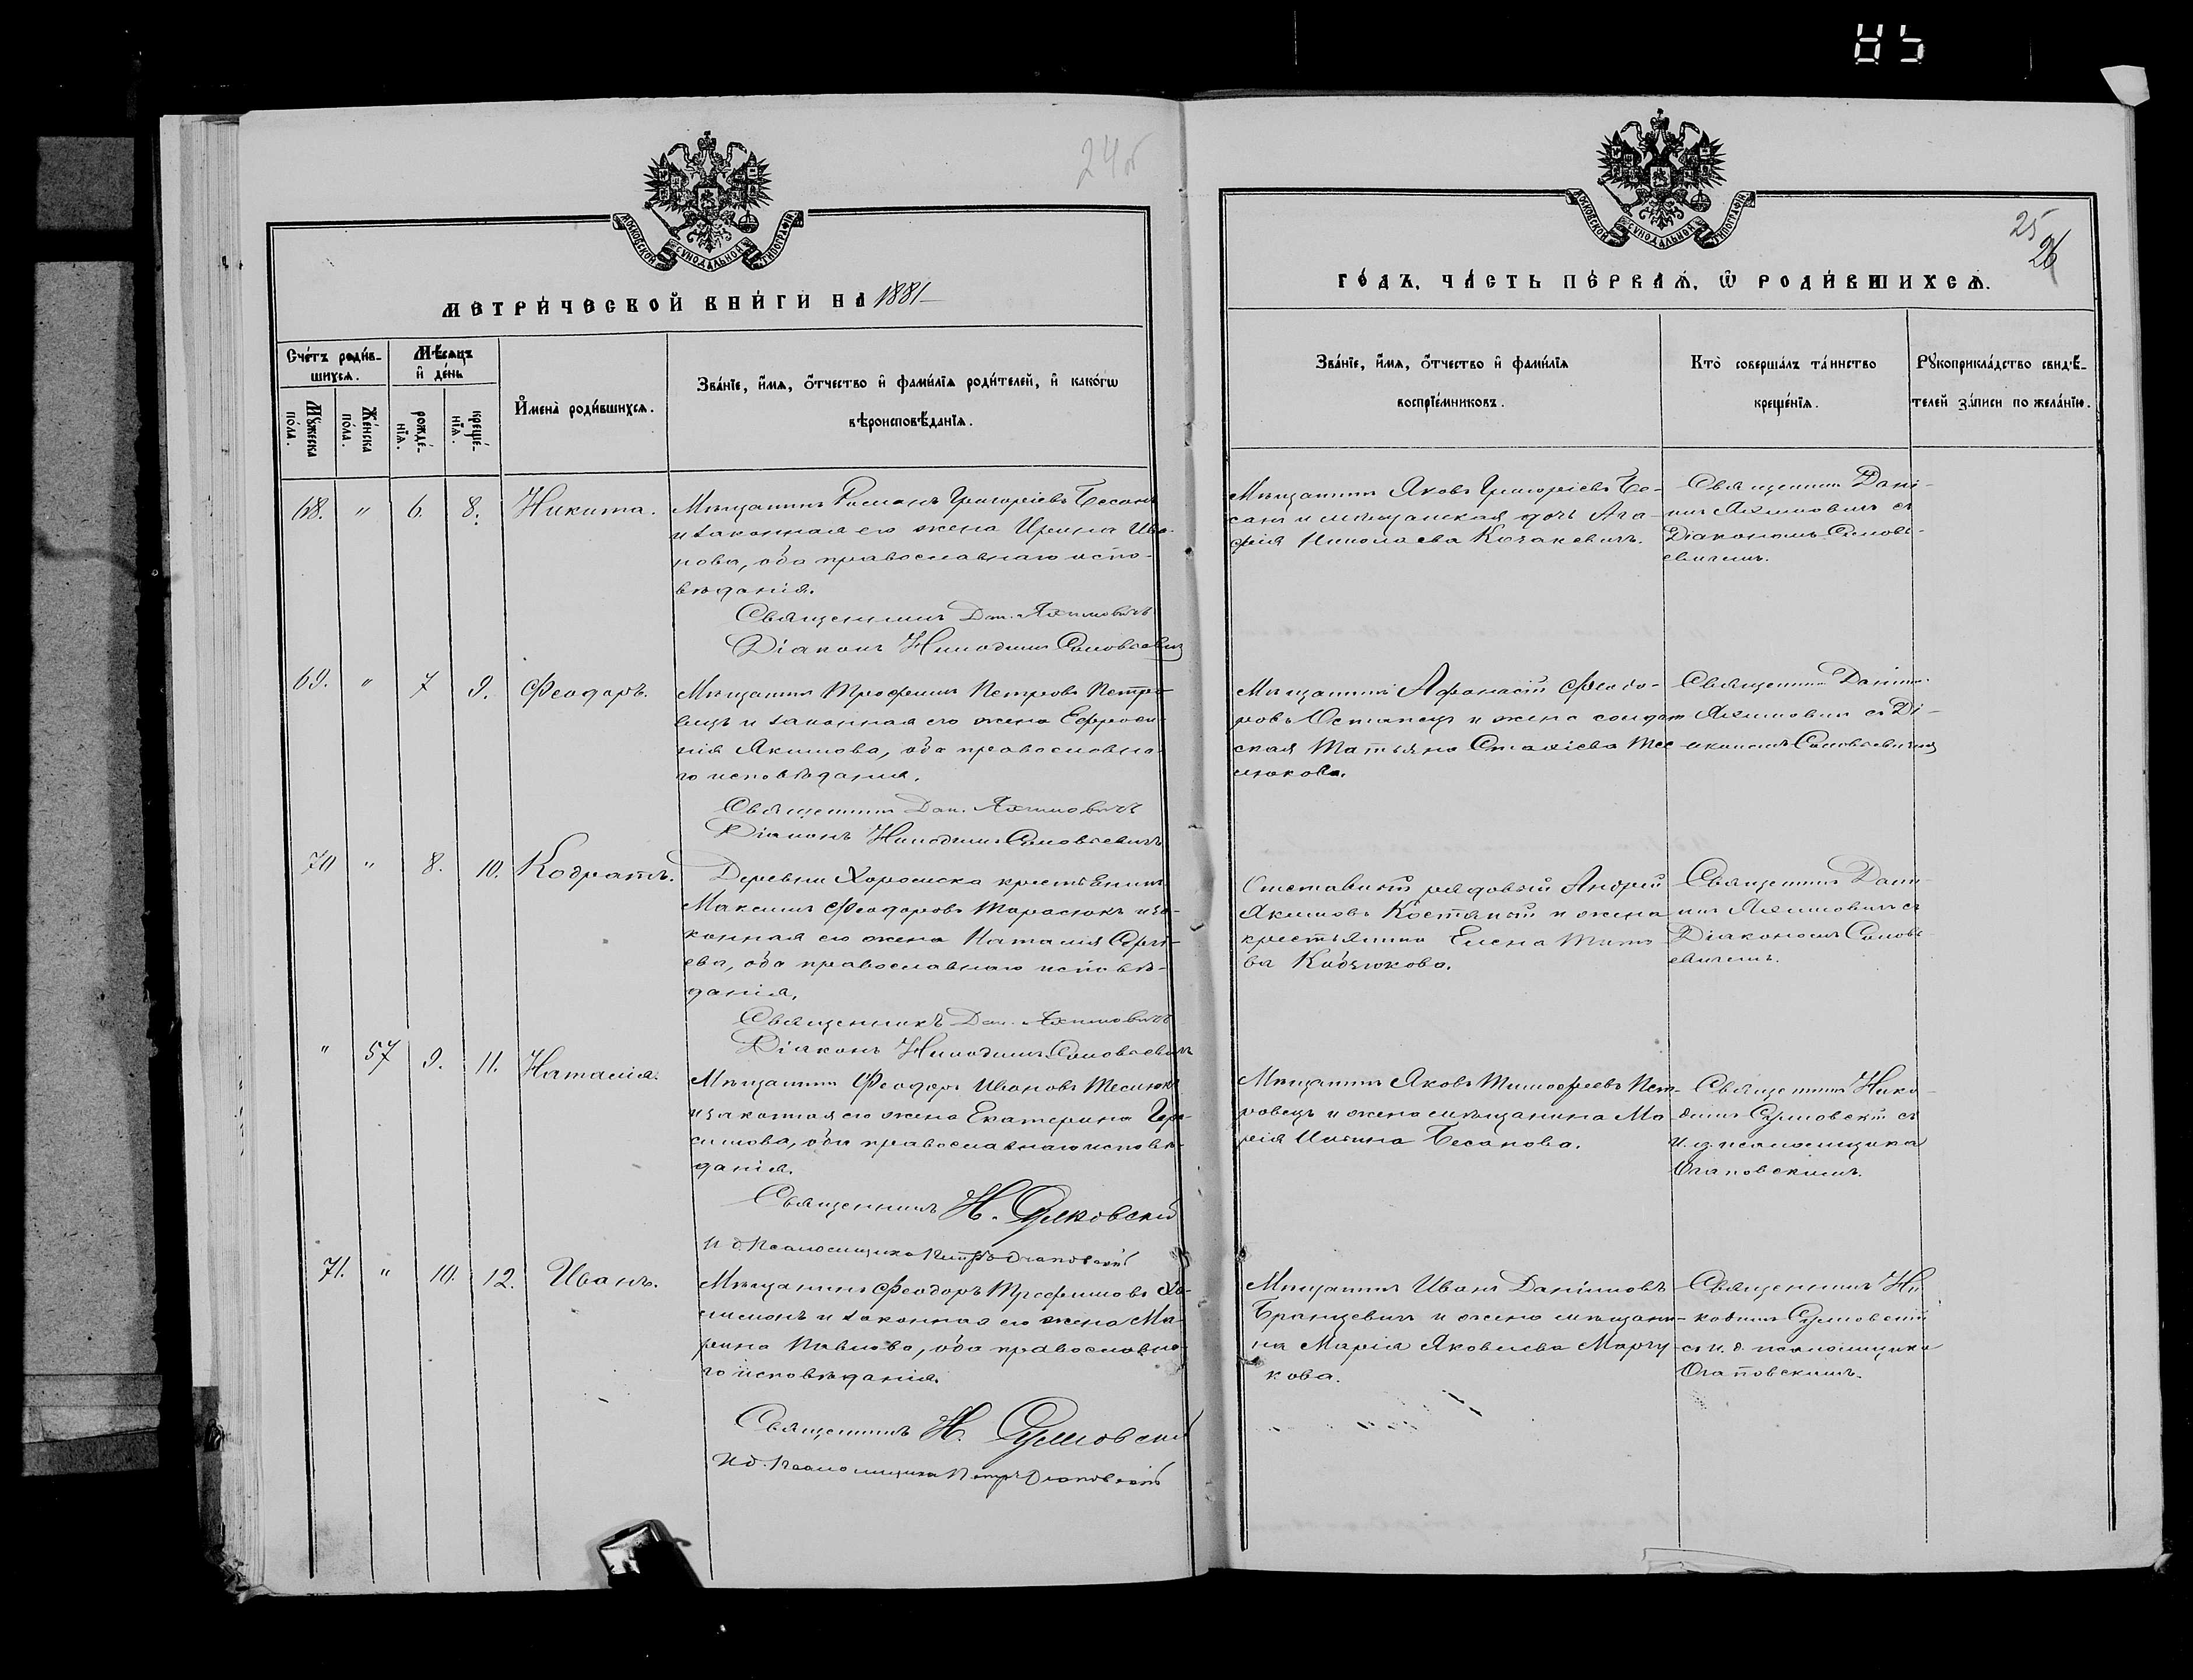 85
24об
МОСКОВСКОЙ СѴНОДАЛЬНОЙ ТИПОГРАФІИ
МЕТРИ́ЧЕСКОЙ КНИ́ГИ НА 1881
Сче́тъ роди́в-
шихсѧ.
Мѣ́сѧцъ
и҆ де́нь
Мꙋ́жеска
по́ла.
Же́нска
по́ла.
рожде́-
нїѧ.
креще́-
нїѧ.
И҆мена̀ роди́вшихсѧ.
Зва́нїе, и҆́мѧ, ѻ҆́тчество и҆ фами́лїѧ роди́телей, и҆ како́гѡ
вѣроисповѣ́данїѧ.
68. " 6. 8. Никита.
Мѣщанинъ Романъ Григоріевъ Бесанъ
и законная его жена Ирина Ива-
нова, оба православнаго испо-
вѣданія.
Священникъ Дан. Яхимовичъ
Діаконъ Никодимъ Соловьевич
69. " 7 9. Феодоръ.
Мѣщанинъ Трофимъ Петровъ Петро-
вецъ и законная его жена Ефроси-
нія Якимова, оба православна-
го исповѣданія.
Священникъ Дан. Яхимовичъ
Діаконъ Никодимъ Соловьевичъ
70 " 8. 10. Кодратъ.
Деревни Хоромска крестьянинъ
Максимъ Феодоровъ Тарасюкъ и за-
конная его жена Наталія Сергі-
ева, оба православнаго исповѣ-
данія.
Священникъ Дан. Яхимовичъ
Діаконъ Никодимъ Соловьевичъ
" 57 9. 11. Наталія.
Мѣщанинъ Феодоръ Ивановъ Теслюкъ
и законная его жена Екатерина Гера-
симова, оба православнаго исповѣ-
данія.
Священникъ Н. Сулковскій
И д Псаломщика Петръ Огановскій
71. " 10. 12. Иванъ.
Мѣщанинъ Феодоръ Трофимовъ
и законная его жена Ма-
рина Павлова, оба православна-
го исповѣданія.
Священникъ Н. Сулковскій
И д. Псаломщика Петръ Огановскій
МОСКОВСКОЙ СѴНОДАЛЬНОЙ ТИПОГРАФІИ
25
26
ГО́ДЪ, ЧА́СТЬ ПЕ́РВАѦ, Ѽ РОДИ́ВШИХСѦ.
Зва́нїе, и҆́мѧ, ѻ҆́тчество и҆ фами́лїѧ
воспрїе́мниковъ.
Кто̀ соверша́лъ та́инство
креще́нїѧ.
Рꙋкоприкла́дство свидѣ́-
телей за́писи по жела́нїю.
Мѣщанинъ Яковъ Григоріевъ Бе-
санъ и мѣщанская дочь Ага-
фія Николаева Козакевичъ.
Священникъ Дані-
илъ Яхимовичъ съ
Діакономъ Соловь-
евичемъ.
Мѣщанинъ Афанасій Феодо-
ровъ Остапецъ и жена солдат
ская Татьяна Стахіева Тес
люкова.
Священникъ Даніилъ
Яхимовичъ съ Ді-
акономъ Соловьевичемъ
Отставный рядовый Андрей
Якимовъ и жена
крестьянина Елена Тито
ва Кибзюкова.
Священникъ Дані-
илъ Яхимовичъ съ
Діакономъ Соловь-
евичемъ.
Мѣщанинъ Яковъ Тимофеевъ Пет-
ровецъ и жена мѣщанина Ма
рія Ильина Бесанова.
Священникъ Нико-
димъ Сулковскій съ
и. д. псаломщика
Огановскимъ.
Мѣщанинъ Иванъ Даніиловъ
Бранцевичъ и жена мѣщани-
на Марія Яковлева Марчу
кова.
Священникъ Ни
кодимъ Сулковскій
съ и. д. псаломщика
Огановскимъ.